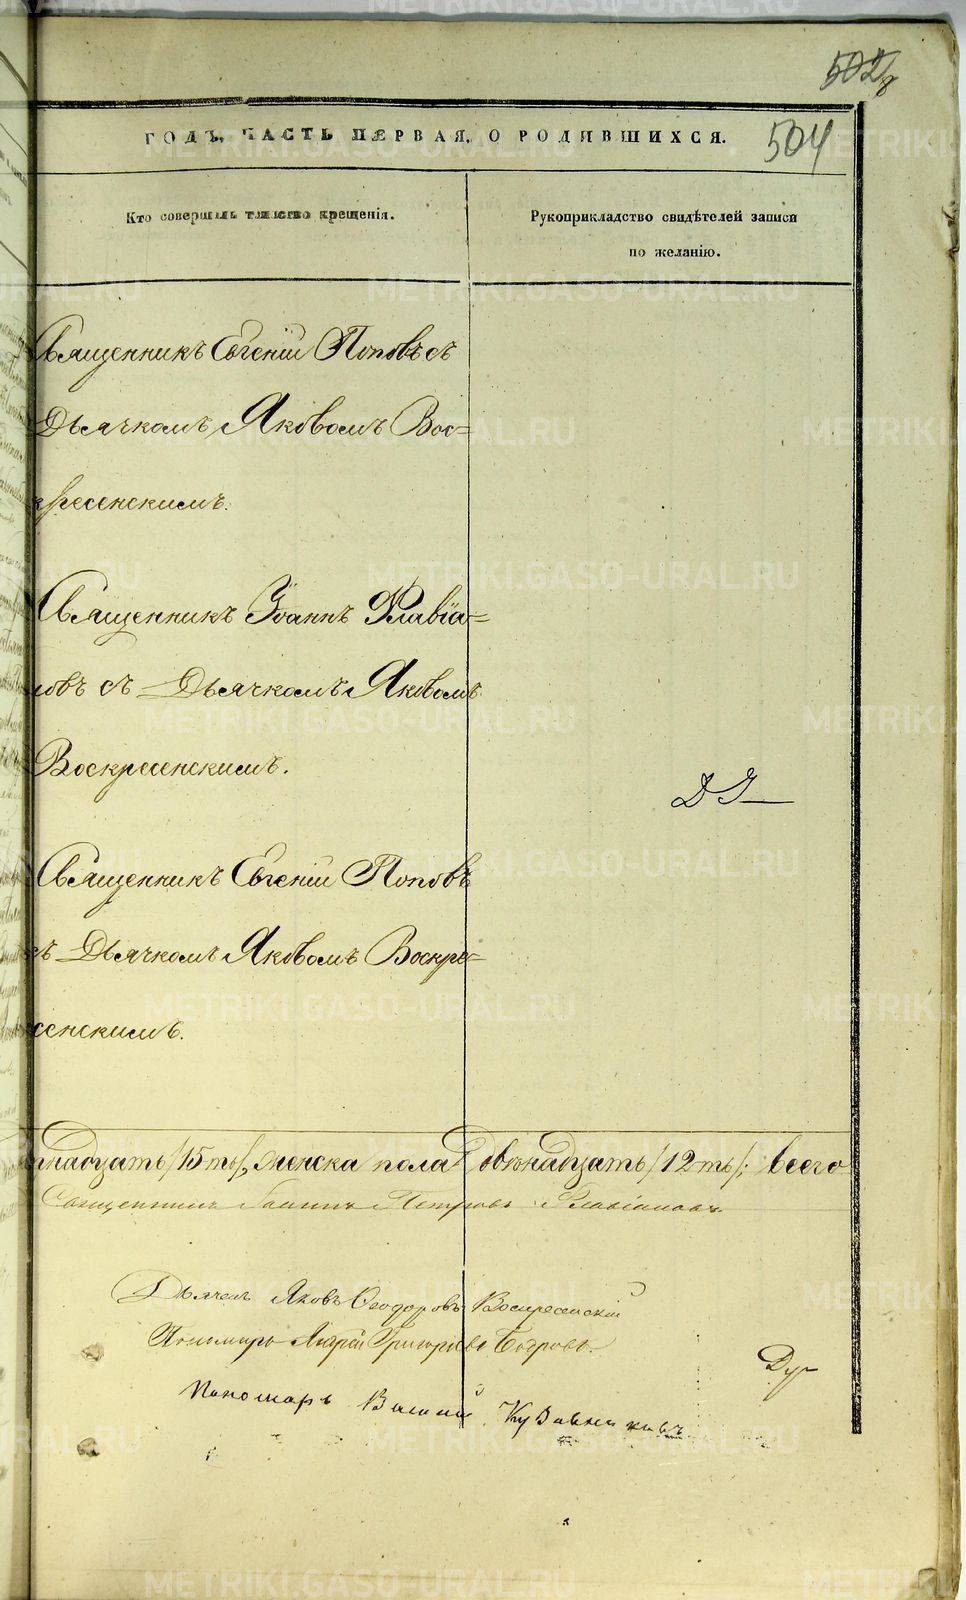 502
504
ГОДЪ, ЧАСТЬ ПЕРВАЯ, О РОДИВШИХСЯ.
Кто совершилъ таинство крещенія.
Рукоприкладство свидѣтелей записи
по желанію.
Священникъ Евгеній Поповъ съ
Дьячкомъ Яковомъ Вос=
кресенскимъ.
Священникъ Іоаннъ Флавіа=
новъ съ Дьячкомъ Яковомъ
Воскресенскимъ.
Священникъ Евгеній Поповъ
съ Дьячкомъ Яковомъ Воскре=
сенскимъ.
надцать /15ть/, женска пола двѣнадцать /12ть/; всего
Священникъ Іоаннъ Петровъ Флавіановъ
Дьячекъ Яковъ Ѳеодоровъ Воскресенскій
Пономарь Андрей Григорьевъ
Пономарь
METRIKI.GASO-URAL.RU